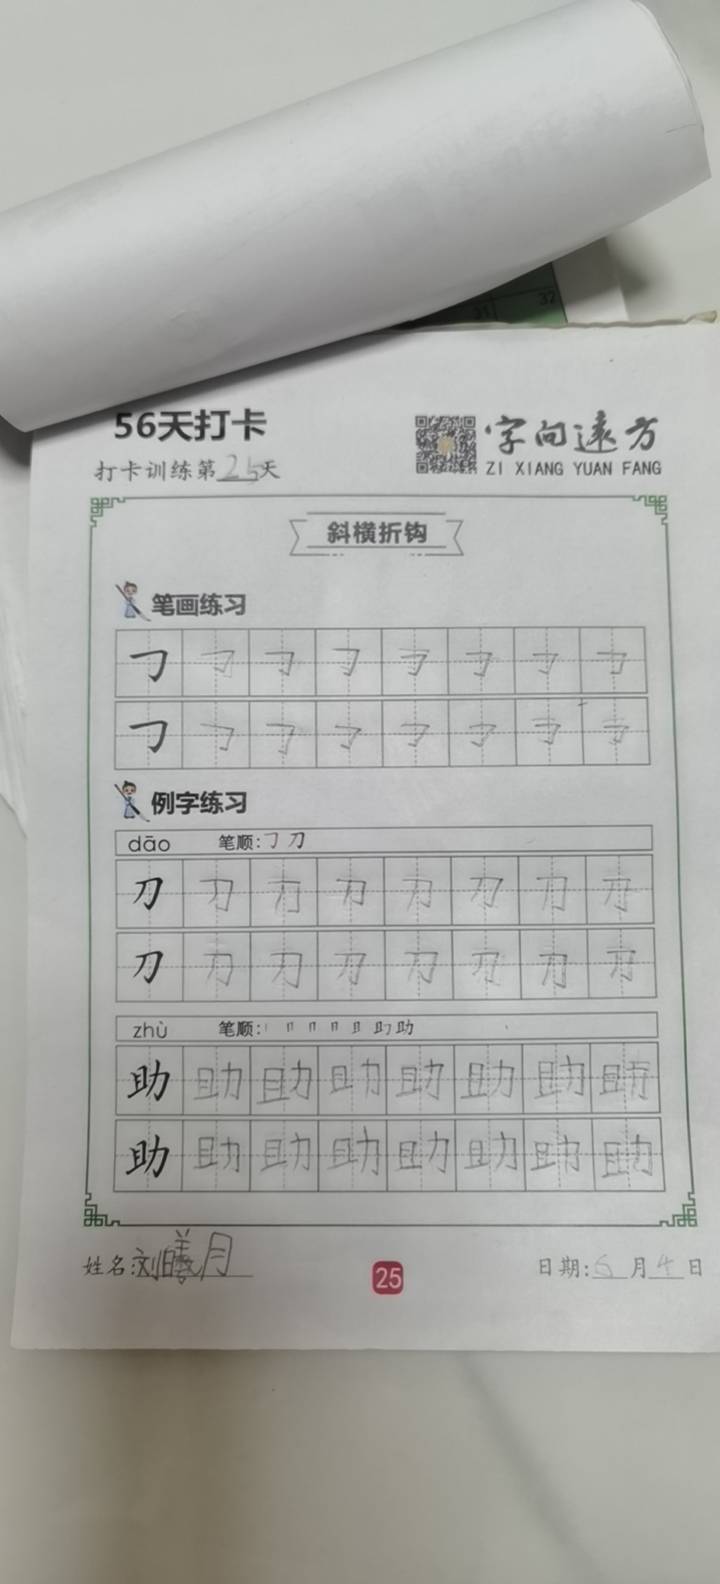 31 32
56天打卡
字向远方
打卡训练第25天
ZI XIANG YUAN FANG
斜横折钩
笔画练习
例字练习
dāo 笔顺: 刀
刀 刀 刀 刀 刀 刀 刀 刀
刀 刀 刀 刀 刀 刀 刀 刀
zhù 笔顺: 助
助 助 助 助 助 助 助 助
助 助 助 助 助 助 助 助
姓名:刘曦月
25
日期:6月4日